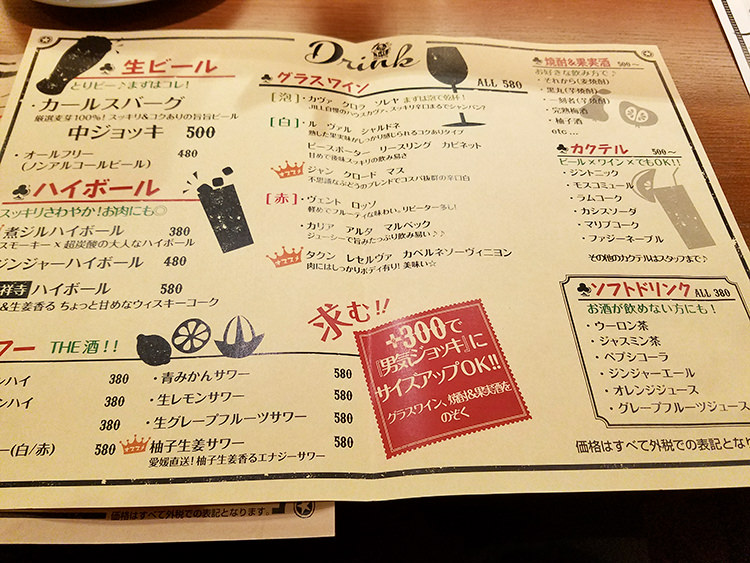 Drink
生ビール
とりビー♪まずはコレ!
・カールスバーグ
厳選麦芽100%!スッキリ&コクありの旨旨ビール
中ジョッキ 500
・オールフリー 480
(ノンアルコールビール)
ハイボール
スッキリさわやか!お肉にも◎
煮ジルハイボール 380
スモーキー×超炭酸の大人なハイボール
ジンジャーハイボール 480
祥寺 ハイボール 580
&生姜香る ちょっと甘めなウィスキーコーク
グラスワイン ALL 580
[泡]・カヴァ クロラ ソレヤ まずは泡で乾杯!
JILL自慢のハウスカヴァ、スッキリ辛口まるでシャンパン?
[白]・ル ヴァル シャルドネ
熟した果実味がしっかり感じられるコクありタイプ
ピースポーター リースリング カビネット
甘めで後味スッキリの飲み易さ
ジャン クロード マス
不思議なぶどうのブレンドでコスパ抜群の辛口白
[赤]・ヴェント ロッソ
軽めでフルーティな味わい。リピーター多し!
・カリア アルタ マルベック
ジューシーで旨みたっぷり飲み易い♪♪
オススメ タクン レセルヴァ カベルネソーヴィニヨン
肉にはしっかりボディ有り!美味い☆
焼酎&果実酒 500〜
お好きな飲み方で♪
・それから(麦焼酎)
・黒丸(芋焼酎)
・一刻者(芋焼酎)
・完熟梅酒
・柚子酒
etc...
カクテル 500〜
ビール×ワイン×でもOK!!
・ジントニック
・モスコミュール
・ラムコーク
・カシスソーダ
・マリブコーク
・ファジーネーブル
その他のカクテルはスタッフまで♪
ソフトドリンク ALL 380
お酒が飲めない方にも!
・ウーロン茶
・ジャスミン茶
・ペプシコーラ
・ジンジャーエール
・オレンジジュース
・グレープフルーツジュース
ワー THE酒!!
ンハイ 380
ンハイ 380
380
ー(白/赤) 580
・青みかんサワー 580
・生レモンサワー 580
・生グレープフルーツサワー 580
オススメ 柚子生姜サワー 580
愛媛直送!柚子生姜香るエナジーサワー
求む!!
+300で
『男気ジョッキ』に
サイズアップOK!!
グラスワイン、焼酎&果実酒を
のぞく
価格はすべて外税での表記となりま
価格はすべて外税での表記となります。